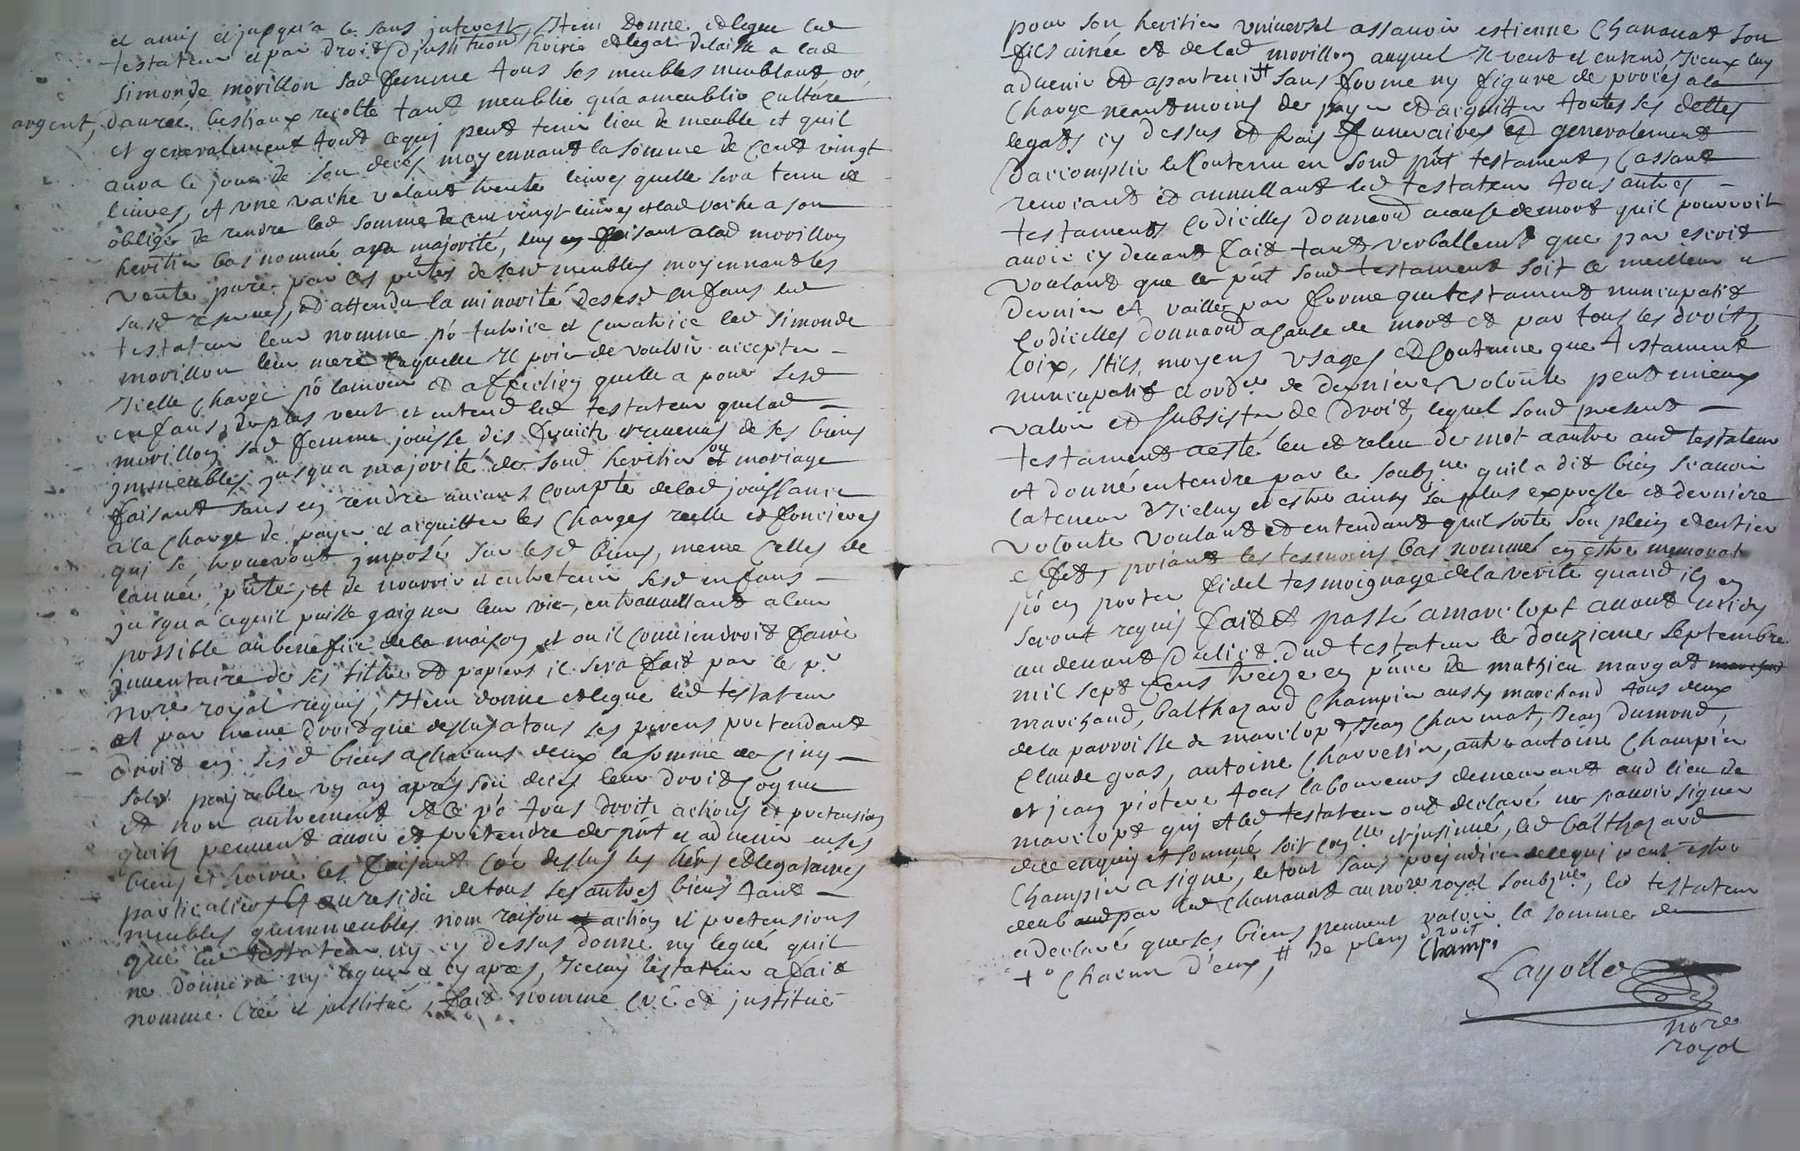 et amis et jusqu'a ce sans interest, Item Donne et legue led
testateur et par droit d'institution hoirie et legat delaisse a lad
Simonde morillon sad femme tous ses meubles meublant or,
argent, danrée, bestiaux recolte tant meublée qu'a ameublir culture
et generalement tout ce qui peut tenir lieu de meuble et quil
aura le jour de son deces moyennant la somme de cent vingt
livres, et une vache valant trente livres quelle sera tenu et
obligé de rendre lad somme de cent vingt livres et lad vache a son
heritier bas nommé a sa majorité, luy en faisant a lad morillon
vente pure par ces pntes de sesd meubles moyennant les
susd reserves, et attendu la minorité de sesd enfans led
testateur leur nomme po tutrice et curatrice lad Simonde
morillon leur mere laquelle Il prie de vouloir accepter
Icelle charge po lamour et affection quelle a pour sesd
enfans, de plus veut et entend led testateur que lad
morillon sad femme jouisse des fruits et revenus de ses biens
immeubles jusqu'a majorité de sond heritier ou mariage
faisant sans en rendre aucun compte de lad jouissance
a la charge de payer et acquitter les charges reelle et foncieres
qui se trouveront imposé sur lesd biens, meme celles de
lannée pnte, et de nourrir et entretenir sesd enfans
jusqu'a ce quil puisse gaigner leur vie, en travaillant a leur
possible au benefice de la maison et ou il conviendroit faire
inventaire de ses titre et papiers il sera fait par le pr
nore royal requis, Item donne et legue led testateur
et par meme droit que dessus a tous ses parens pretendant
droit en sesd biens a chacuns deux la somme de cinq
sols payable un an apres son deces leur droit cogneu
et non autrement et ce po tous droits actions et pretension
quils peuvent avoir et pretendre de pnt et advenir en ses
biens et hoirie les faisant ... dessus les hers et legataires
particuliers et au residu de tous ses autres biens tant
meubles quimmeubles nom raison et action et pretensions
que led testateur n'y cy dessus donne ny legué quil
ne donnera ny leguera cy apres, Iceluy testateur a fait
nomme créé et institué, fait nomme créé et institue
pour son heritier universel assavoir estienne Chanaud son
fils ainée et de lad morillon auquel Il veut et entend Iceux luy
advenir et apartenir # sans forme ny figure de procés a la
Charge neantmoins de payer et acquitter toutes ses dettes
legats cy dessus et frais funeraires et generalement
d'accomplir le Contenu en sond pnt testament, Cassant
revocant et annullant led testateur tous autres
testaments Codicilles donnaon a cause de mort quil pourroit
avoir cy devant fait tant verballement que par escrit
voulant que le pnt sond testament soit le meilleur et
dernier et vaille par forme que testament nuncupatif
Codicilles donnaon a cause de mort et par tous les droits
loix, stils, moyens usages et Coutume que testament
nuncupatif et ordce de derniere volonte peut mieux
valoir et subsister de droit, lequel sond present
testament a esté leu et releu de mot a autre aud testateur
et donné entendre par le soubzne quil a dit bien scavoir
la teneur d'Iceluy et estre ainsy sa plus expresse et derniere
volonte voulant et entendant quil sorte son plein et entier
effet, priant les tesmoins bas nommés en estre memorat
po en porter fidel tesmoignage de la verité quand ils en
seront requis fait et passé a marcilopt avant midy
au devant du lict dud testateur le douzieme septembre
mil sept cens treize en pnce de mathieu margat
marchand, balthazard Champin aussy marchand tous deux
de la parroisse de marcilopt Jean Charmat, Jean dumond,
Claude gras, antoine Charretin, autre antoine Champin
et jean pioteur tous laboureurs demeurant aud lieu de
marcilopt qui et led testateur ont declaré ne scavoir signer
de ce enquis et sommé, soit con.lle et insinué, led balthazard
Champin a signé, le tout sans prejudice de ce qui peut estre
deub par led Chanaud au nore royal soubzne, led testateur
a declaré que ses biens peuvent valoir la somme de
+ Chacun d'eux, # de plein droit
Champi
Cayotte
nore
royal